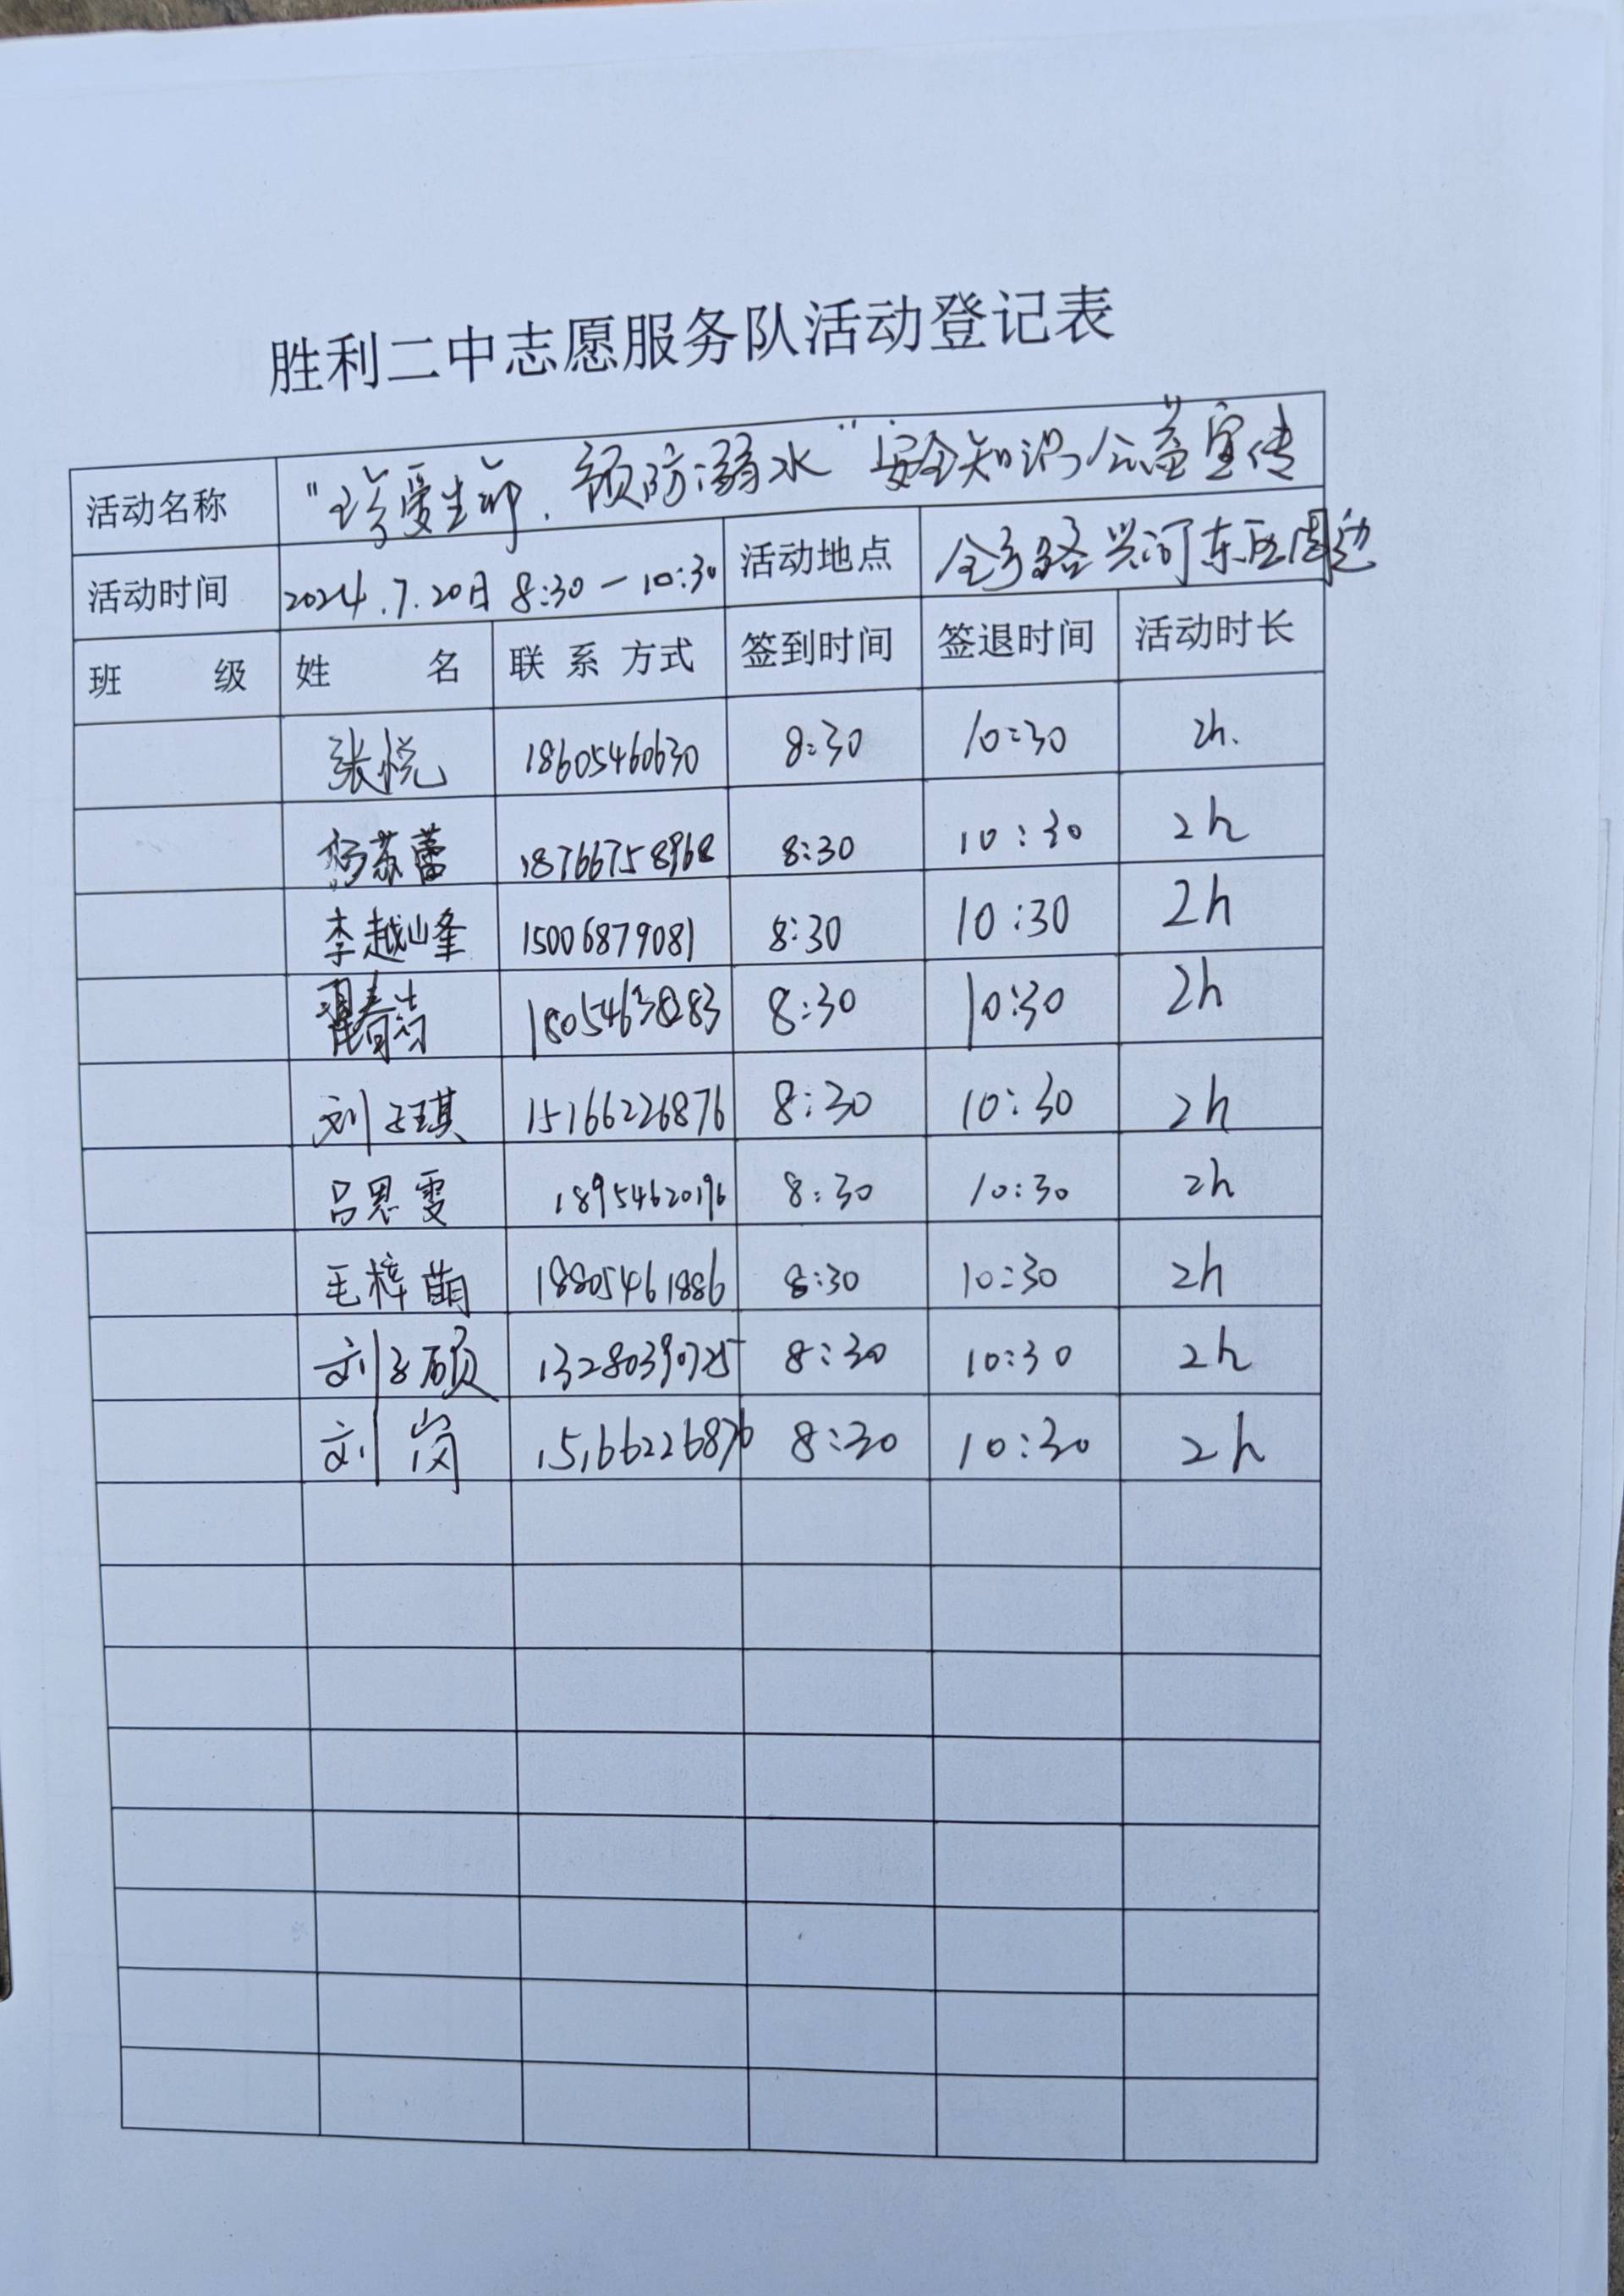 胜利二中志愿服务队活动登记表
活动名称 "珍爱生命、预防溺水"安全知识公益宣传
活动时间 2024.7.20日 8:30-10:30 活动地点 路兴河东区周边
班 级 姓 名 联 系 方式 签到时间 签退时间 活动时长
张悦 18605460630 8:30 10:30 2h.
杨苏蕾 18766758968 8:30 10:30 2h
李越峰 15006879081 8:30 10:30 2h
翟春 18054638283 8:30 10:30 2h
刘子琪 15166226876 8:30 10:30 2h
吕思雯 18954620196 8:30 10:30 2h
毛梓萌 18805461886 8:30 10:30 2h
刘子硕 13280390725 8:30 10:30 2h
刘岗 15166226876 8:30 10:30 2h